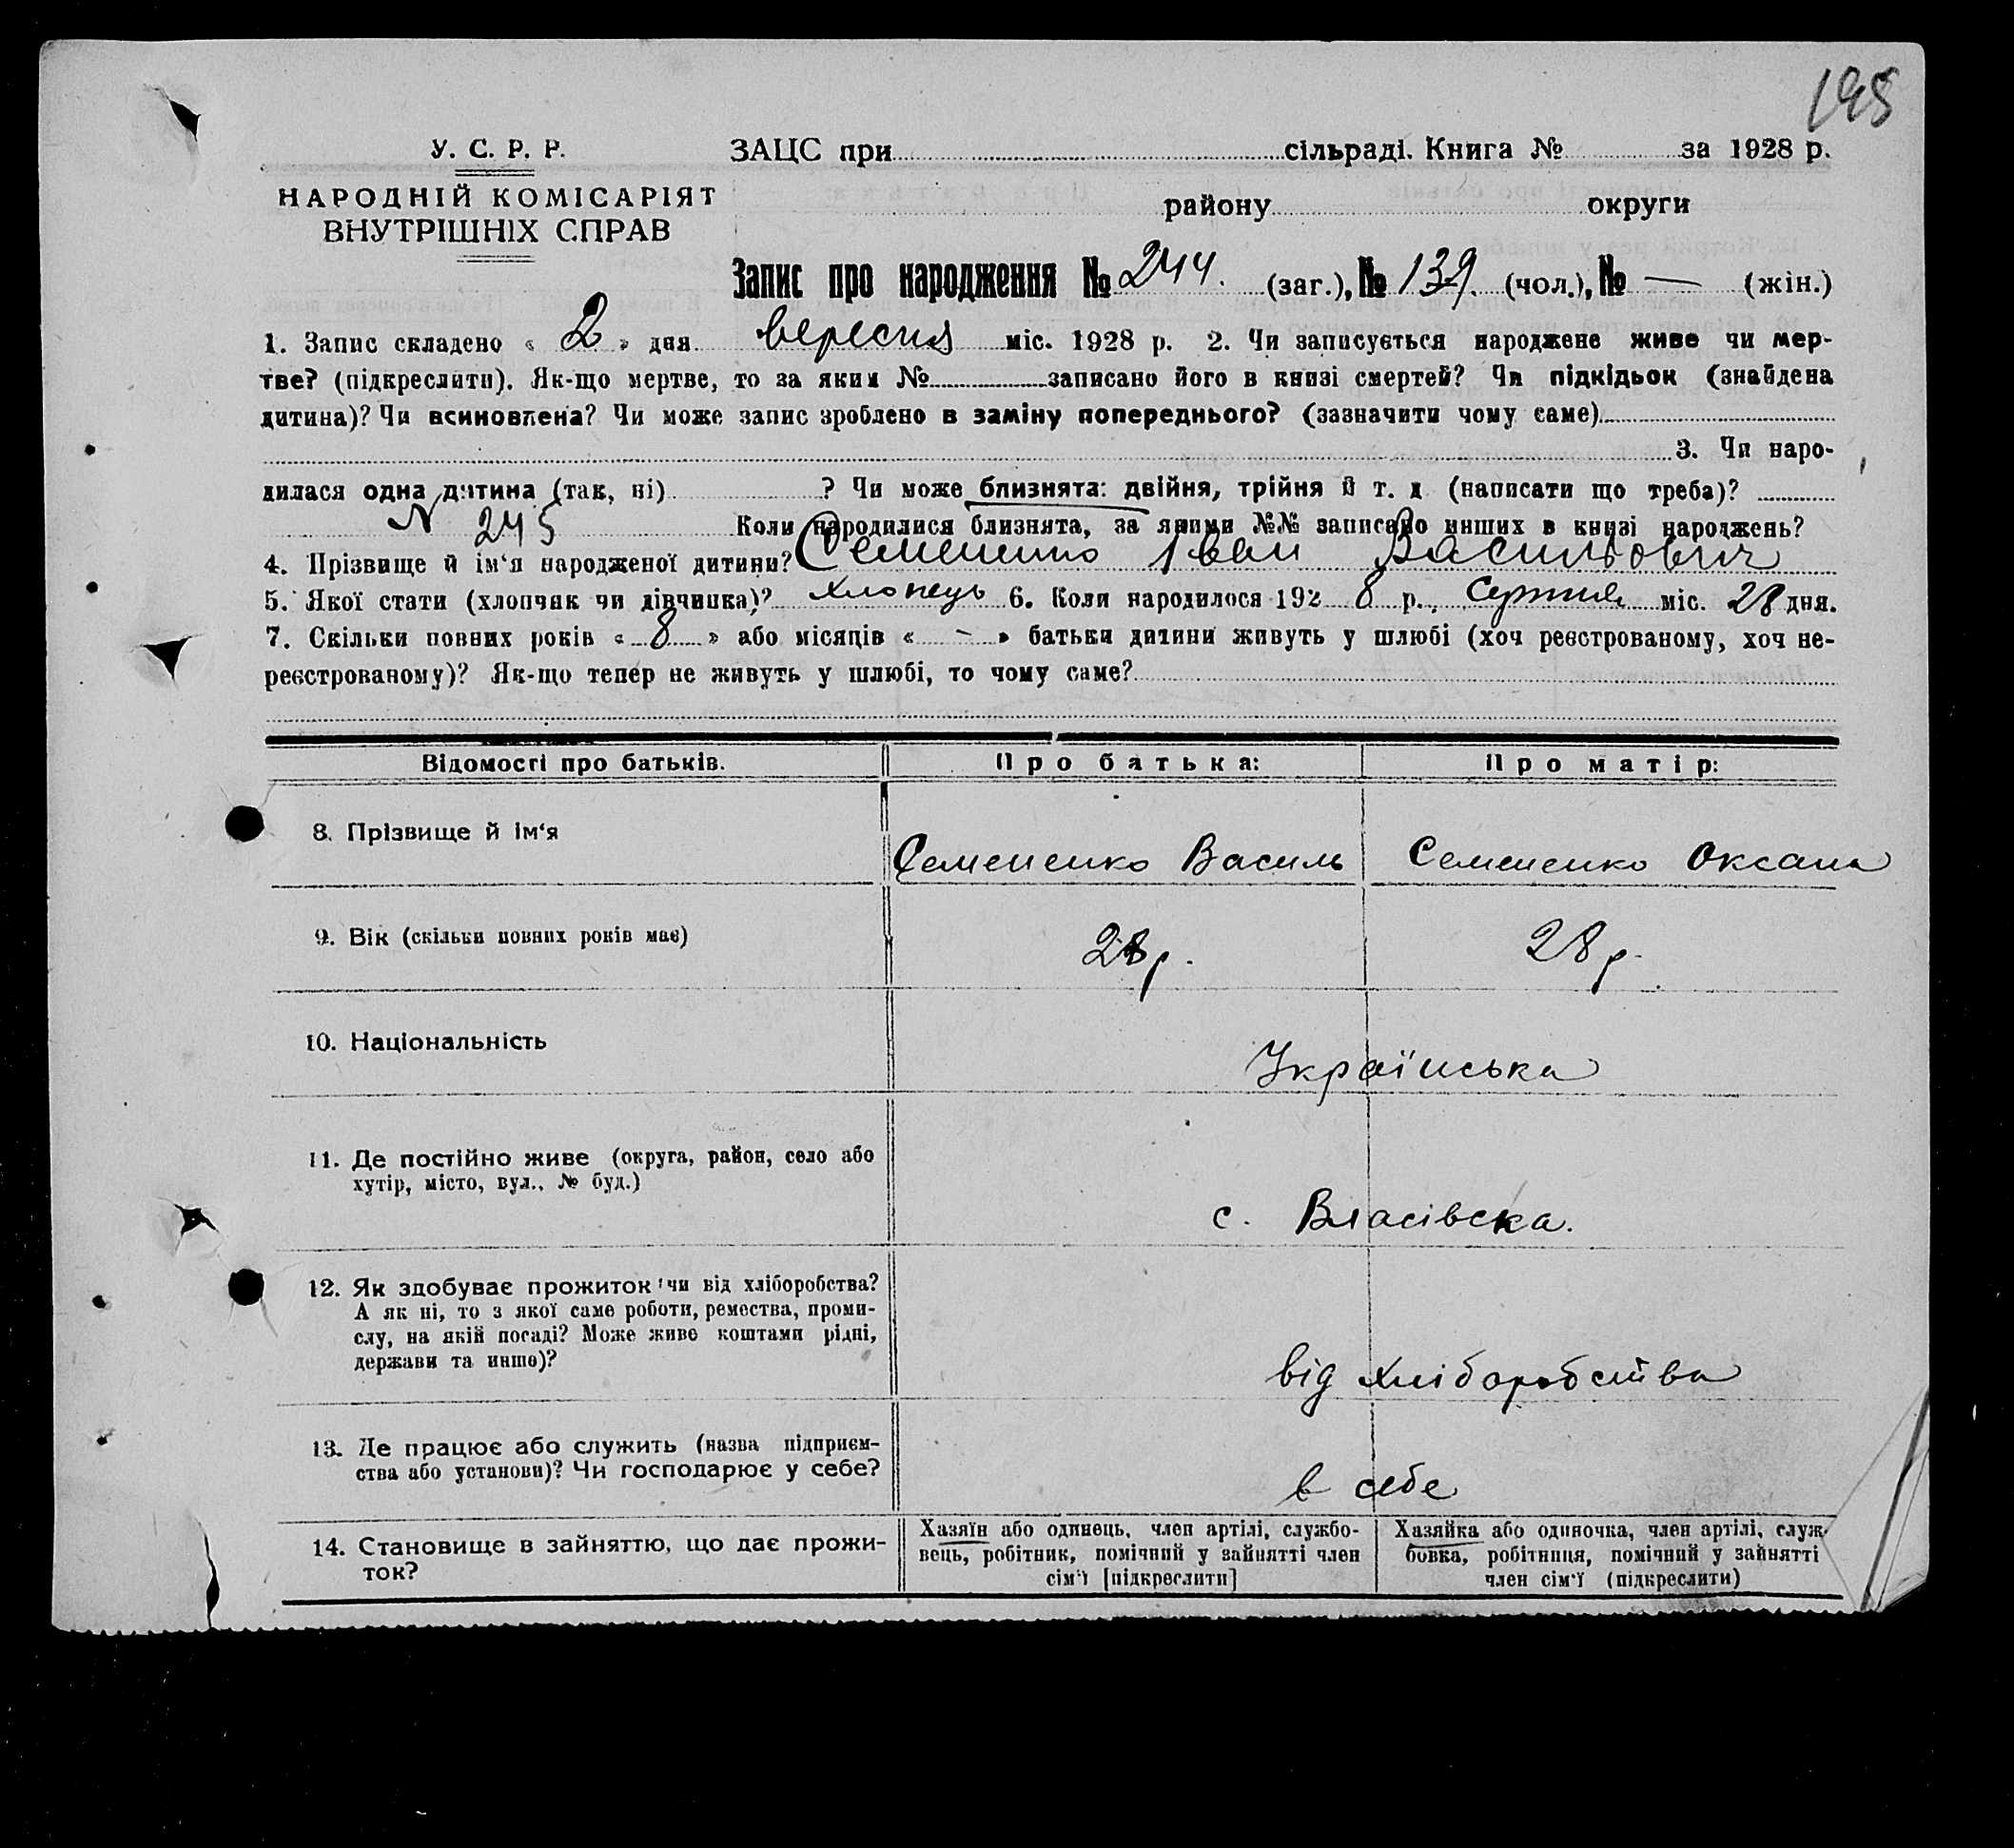 195
У. С. Р. Р.
ЗАЦС при сільраді. Книга № за 1928 р.
НАРОДНІЙ КОМІСАРІЯТ
ВНУТРІШНІХ СПРАВ
району округи
Запис про народження № 244. (заг.), № 139. (чол.), № — (жін.)
1. Запис складено « 2 » дня вересня міс. 1928 р. 2. Чи записується народжене живе чи мер-
тве? (підкреслити). Як-що мертве, то за яким № записано його в книзі смертей? Чи підкідьок (знайдена
дитина)? Чи всиновлена? Чи може запис зроблено в заміну попереднього? (зазначити чому саме)
3. Чи наро-
дилася одна дитина (так, ні) ? Чи може близнята: двійня, трійня й т. д (написати що треба)?
N 245 Коли народилися близнята, за якими №№ записано инших в книзі народжень?
4. Прізвище й ім‘я народженої дитини? Семененко Іван Васильович
5. Якої стати (хлопчик чи дівчинка)? хлопець 6. Коли народилося 192 8 р., Серпня міс. 28 дня.
7. Скільки повних років « 8 » або місяців « - » батьки дитини живуть у шлюбі (хоч реєстрованому, хоч не-
реєстрованому)? Як-що тепер не живуть у шлюбі, то чому саме?
Відомості про батьків. Про батька: Про матір:
8. Прізвище й ім‘я Семененко Василь Семененко Оксана
9. Вік (скільки повних років має) 28 р. 28 р.
10. Національність Українська
11. Де постійно живе (округа, район, село або
хутір, місто, вул., № буд.)
с. Власівска.
12. Як здобуває прожиток чи від хліборобства?
А як ні, то з якої саме роботи, ремества, проми-
слу, на якій посаді? Може живе коштами рідні,
держави та инше)?
від хліборобства
13. Де працює або служить (назва підприєм-
ства або установи)? Чи господарює у себе?
в себе
14. Становище в зайняттю, що дає прожи-
ток?
Хазяїн або одинець, член артілі, службо-
вець, робітник, помічний у зайнятті член
сім‘ї [підкреслити]
Хазяйка або одиночка, член артілі, служ-
бовка, робітниця, помічний у зайнятті
член сім‘ї (підкреслити)